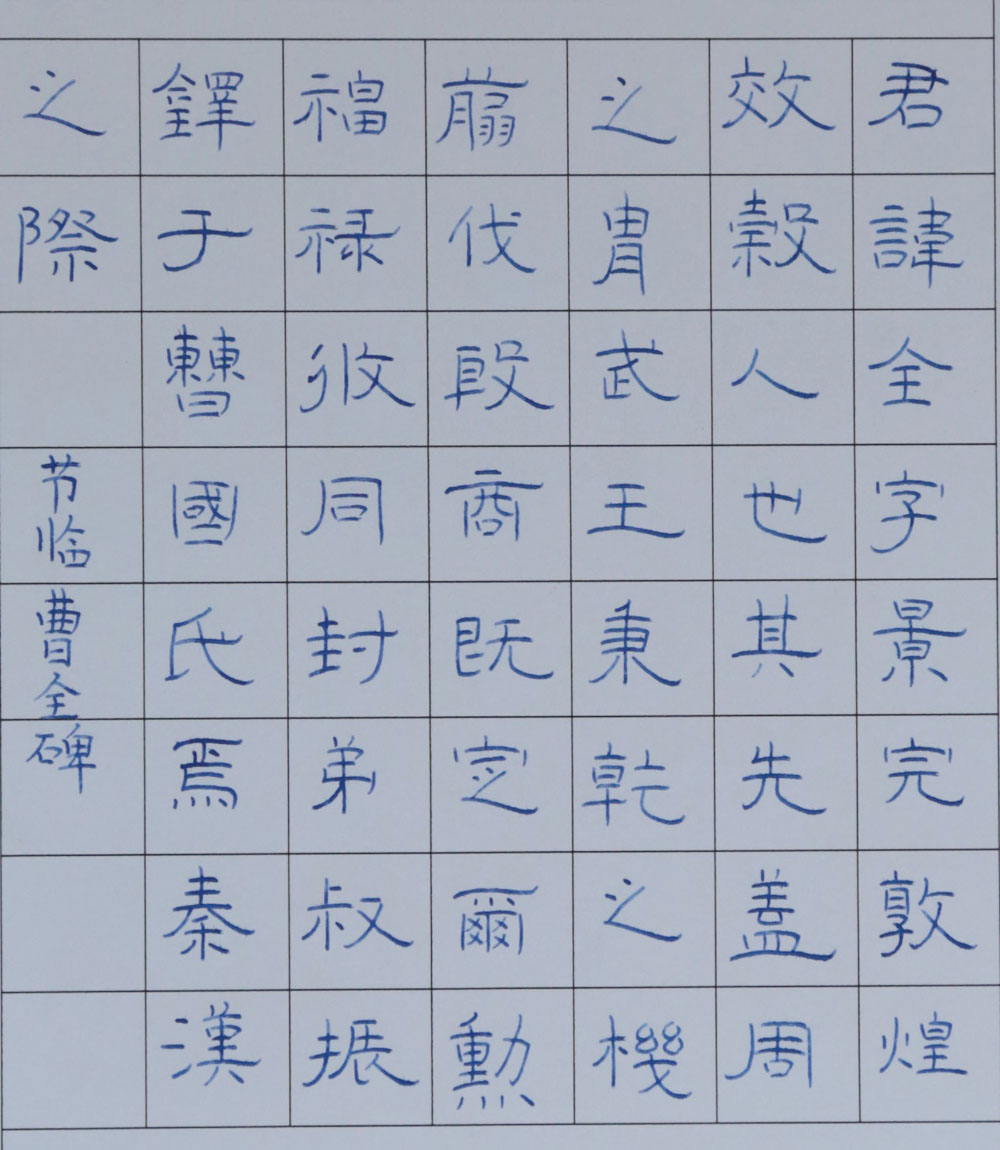 君諱全字景完敦煌
效穀人也其先盖周
之胄武王秉乾之機
翦伐殷商既定爾勳
福禄攸同封弟叔振
鐸于曹國氏焉秦漢
之際
节临曹全碑